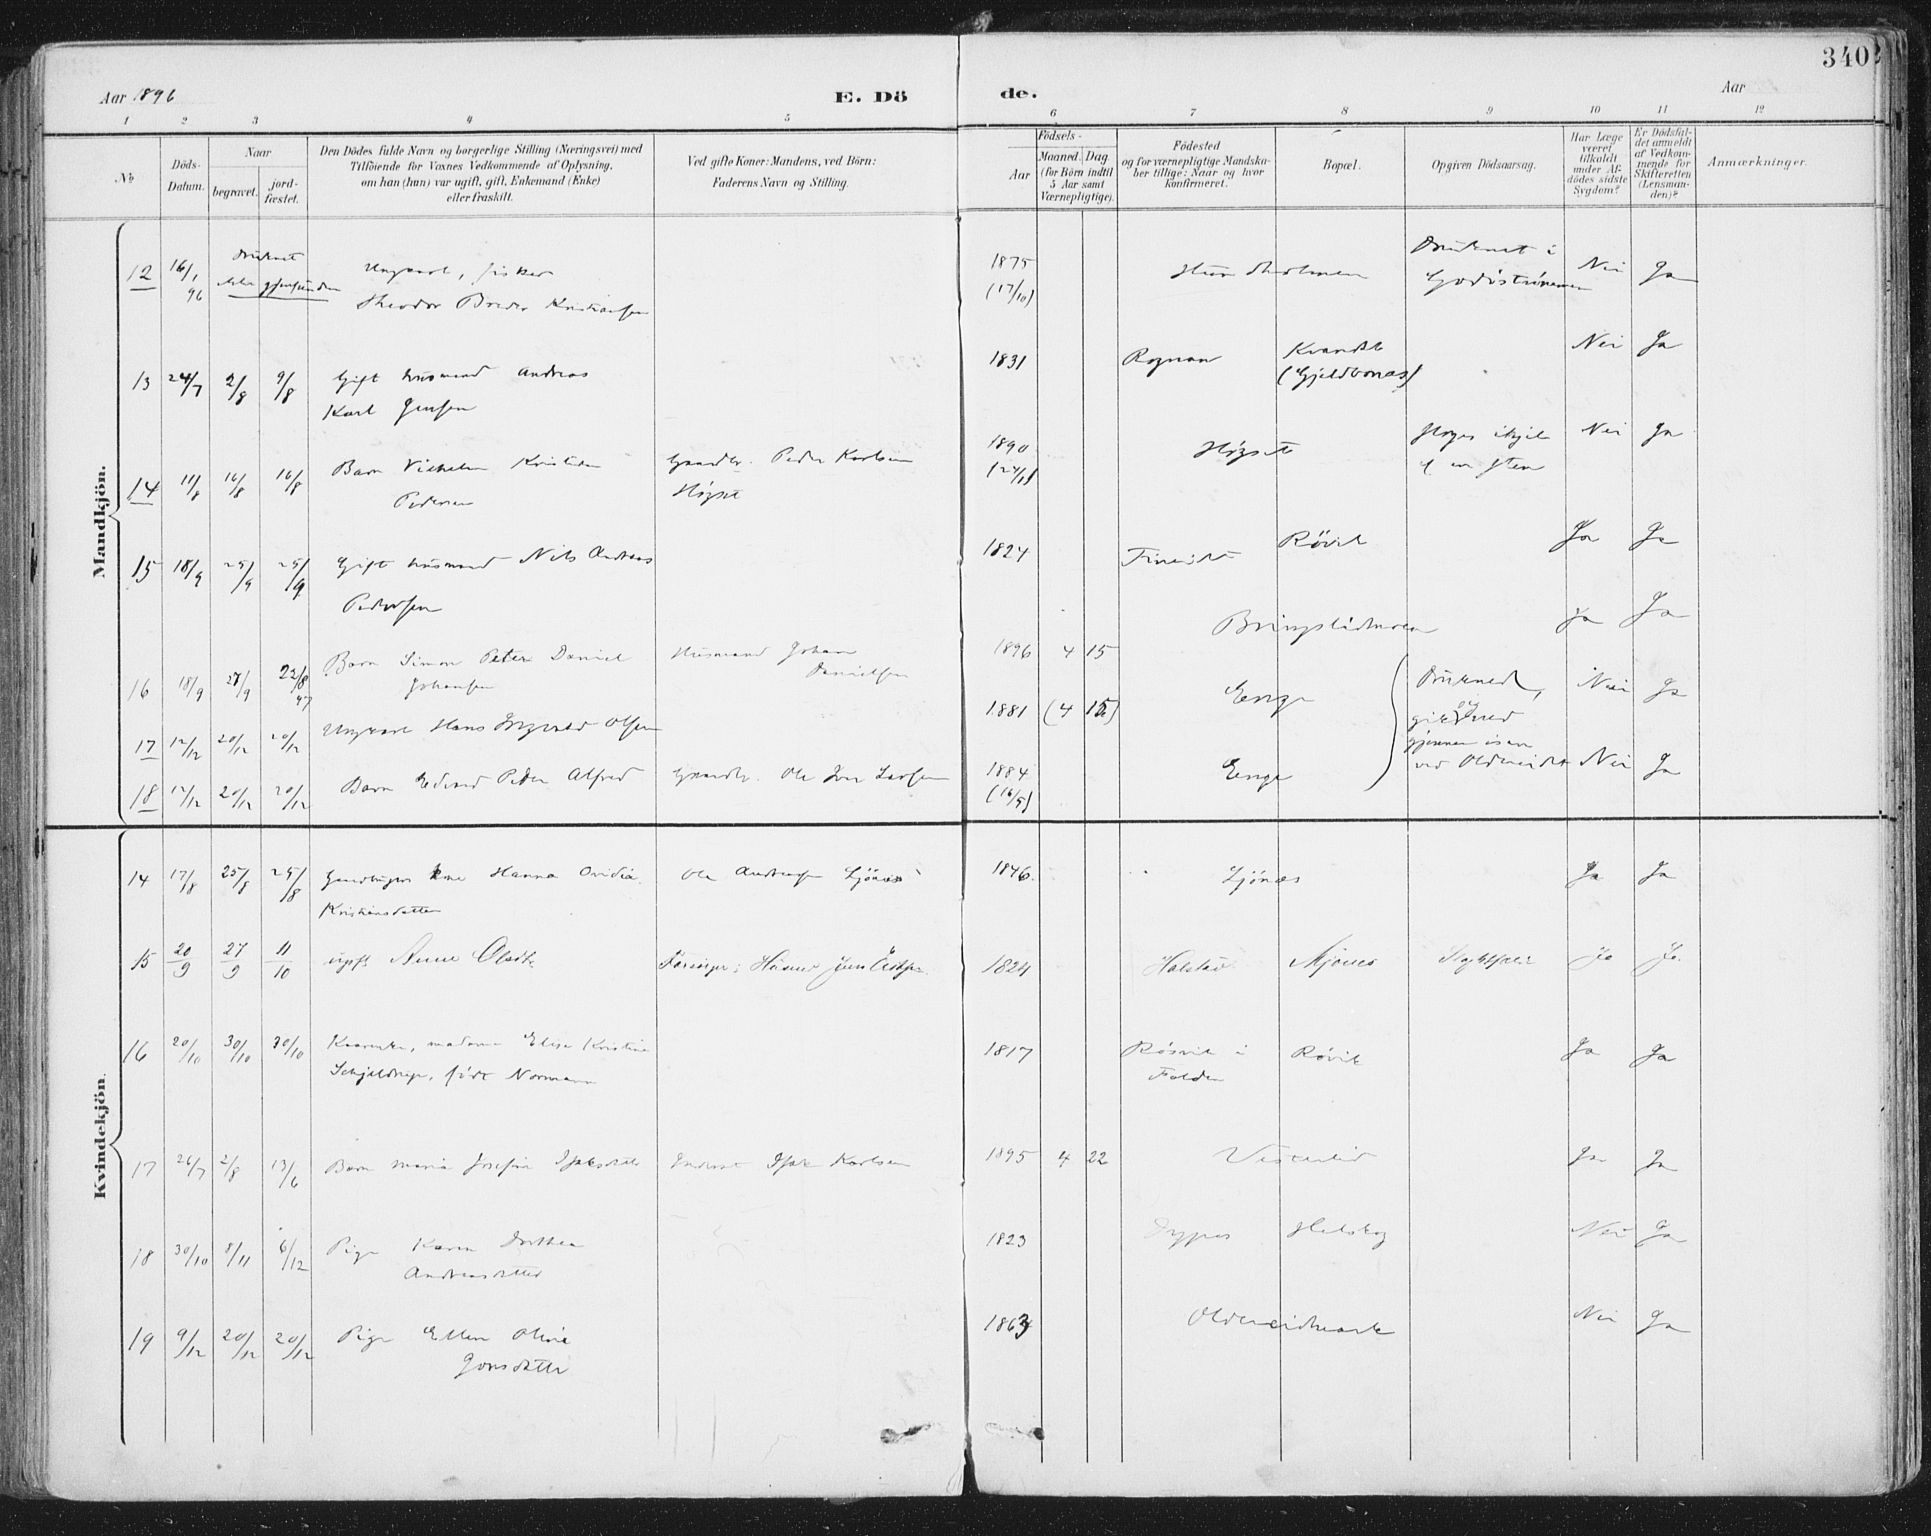 340
Aar 1896
E. Dö
de.
Aar
1 2 3 4 5 6 7 8 9 10 11 12
No
Döds-Datum.
Naar
begravet.
jord-fæstet.
Den Dödes fulde Navn og borgerlige Stilling (Næringsvei) med
Tilföiende for Voxnes Vedkommende af Oplysning,
om han (hun) var ugift, gift, Enkemand (Enke)
eller fraskilt.
Ved gifte Koner: Mandens, ved Börn:
Faderens Navn og Stilling.
Födsels-
Aar
Maaned.
Dag
(for Börn indtil
5 Aar samt
Værnepligtige).
Födested
og for værnepligtige Mandska-
ber tillige: Naar og hvor
konfirmeret.
Bopæl.
Opgiven Dödsaarsag.
Har Læge
været
tilkaldt
under Af-
dödes sidste
Sygdom?
Er Dödsfal-
det anmeldt
af Vedkom-
mende for
Skifteretten
(Lensman-
den)?
Anmærkninger.
Mandkjön.
12 16/1 96 Druknet ikke gjenfunden Ungkarl, fisker 1875 (17/10) Druknet i Godöströmmen Nei Ja
Theodor Breder Kristiansen
13 24/7 2/8 9/8 Gift husmand Andreas 1831 Rognan Kvandal (Gjeldvonas) Nei Ja
Karl Jensen
14 11/8 16/8 16/8 Barn Vilhelm Kristian Gaardbr. Peder Karlsen 1890 Högset Nei Ja
Pedersen Högset
af en Sten
15 18/9 25/9 25/9 Gift husmand Nils Andreas 1824 Fineidet Rövik Ja Ja
Pedersen
16 18/9 27/9 22/8 97 Barn Simon Peter Daniel Husmand Johan 1896 4 15 Bringslidmoen Ja Ja
Johansen Danielsen
17 12/12 20/12 20/12 Ungkarl Hans Ingvald Olsen 1881 (4 15) Enge Druknede, Nei Ja
gik sig ned
gjennem isen
18 12/12 20/12 20/12 Barn Edvard Peder Alfred Gaardbr. Ole Larsen 1884 (16/9) Enge ved Oldereidet Nei Ja
Kvindekjön.
14 17/8 25/8 25/8 Gaardbrugers kone Hanna Ovidia Ole Andreassen Ljönes 1846 Ljönes Ja Ja
Kristensdatter
15 20/9 27/9 11/10 ugift Anne Olsdtr 1824 Halstad Mjönes Ja Ja
16 20/10 30/10 30/10 madame Elisa Kristine 1817 Rösvik i Rövik Ja Ja
Schjeldrup, födt Normann Folden
17 24/7 2/8 13/6 Barn Maria Josefine Isaksdatter Inderst Isak Karlsen 1895 4 22 Vesterlid Ja Ja
18 30/10 8/11 6/12 Pige Karen Dorthea 1823 Nei Ja
Andreasdatter
19 9/12 20/12 20/12 Pige Ellen Oline 1863 Oldereidmark Nei Ja
Jonsdatter